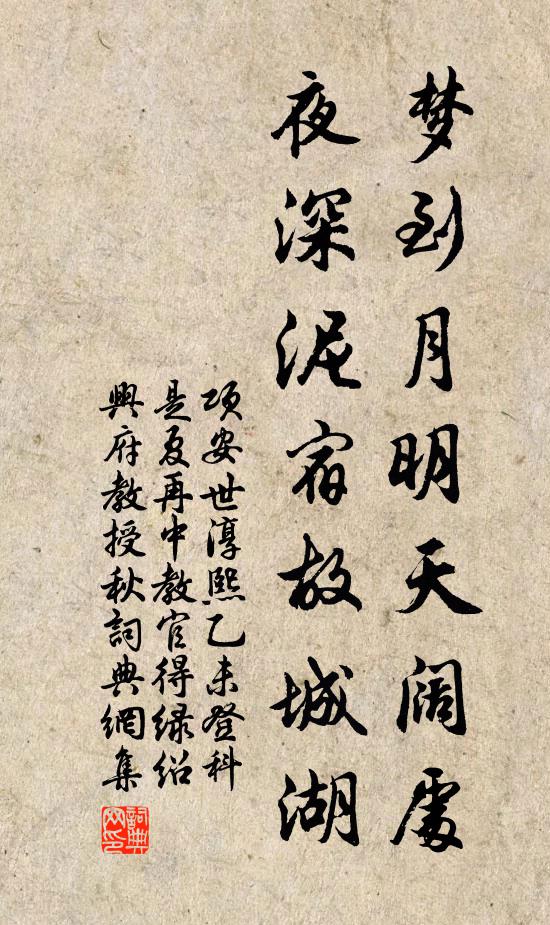 梦到月明天阔處
夜深泥宿故城湖
项安世淳熙乙未登科
是夏再中教官得绿绍
興府教授秋詞典網集
詞典
网印